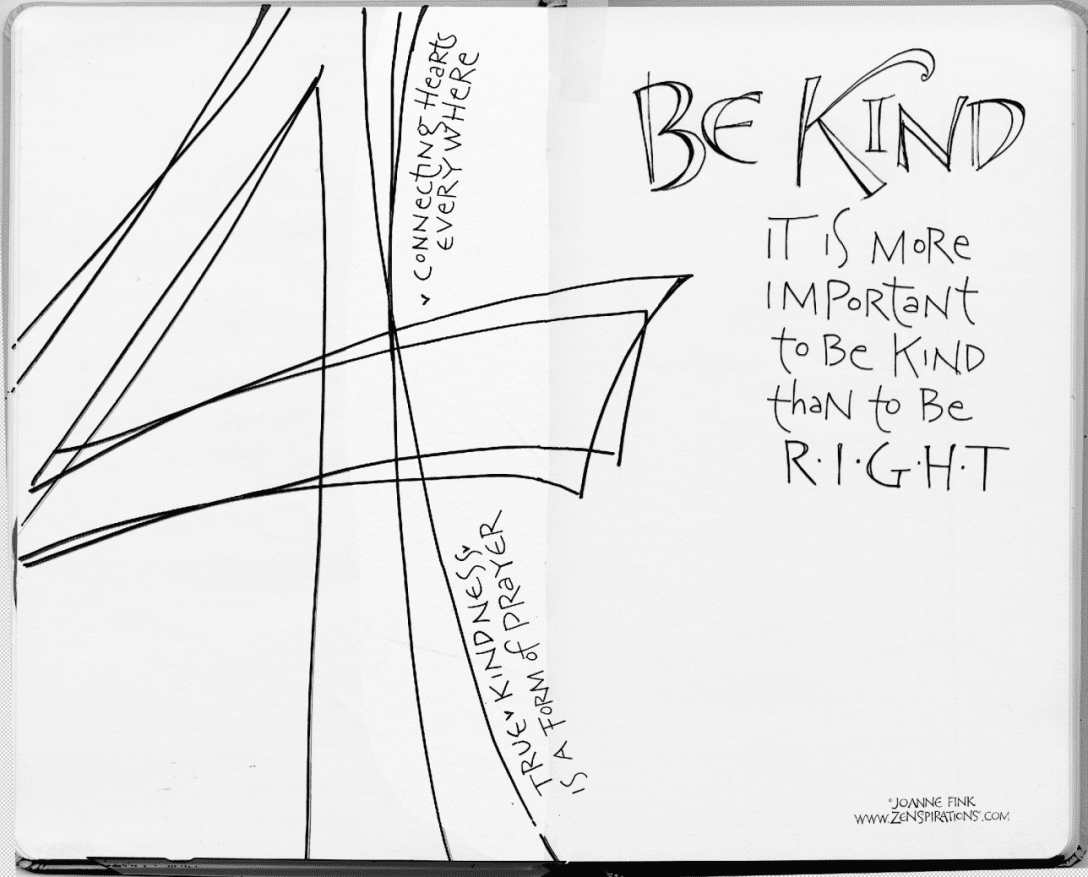 Connecting Hearts
EVERYWHERE
TRUE KINDNESS
IS A FORM of PRAYER
BE KIND
IT IS MORE
IMPORTANT
to Be KIND
thaN to Be
R·I·G·H·T
©JOANNE FINK
WWW.ZENSPIRATIONS®.COM